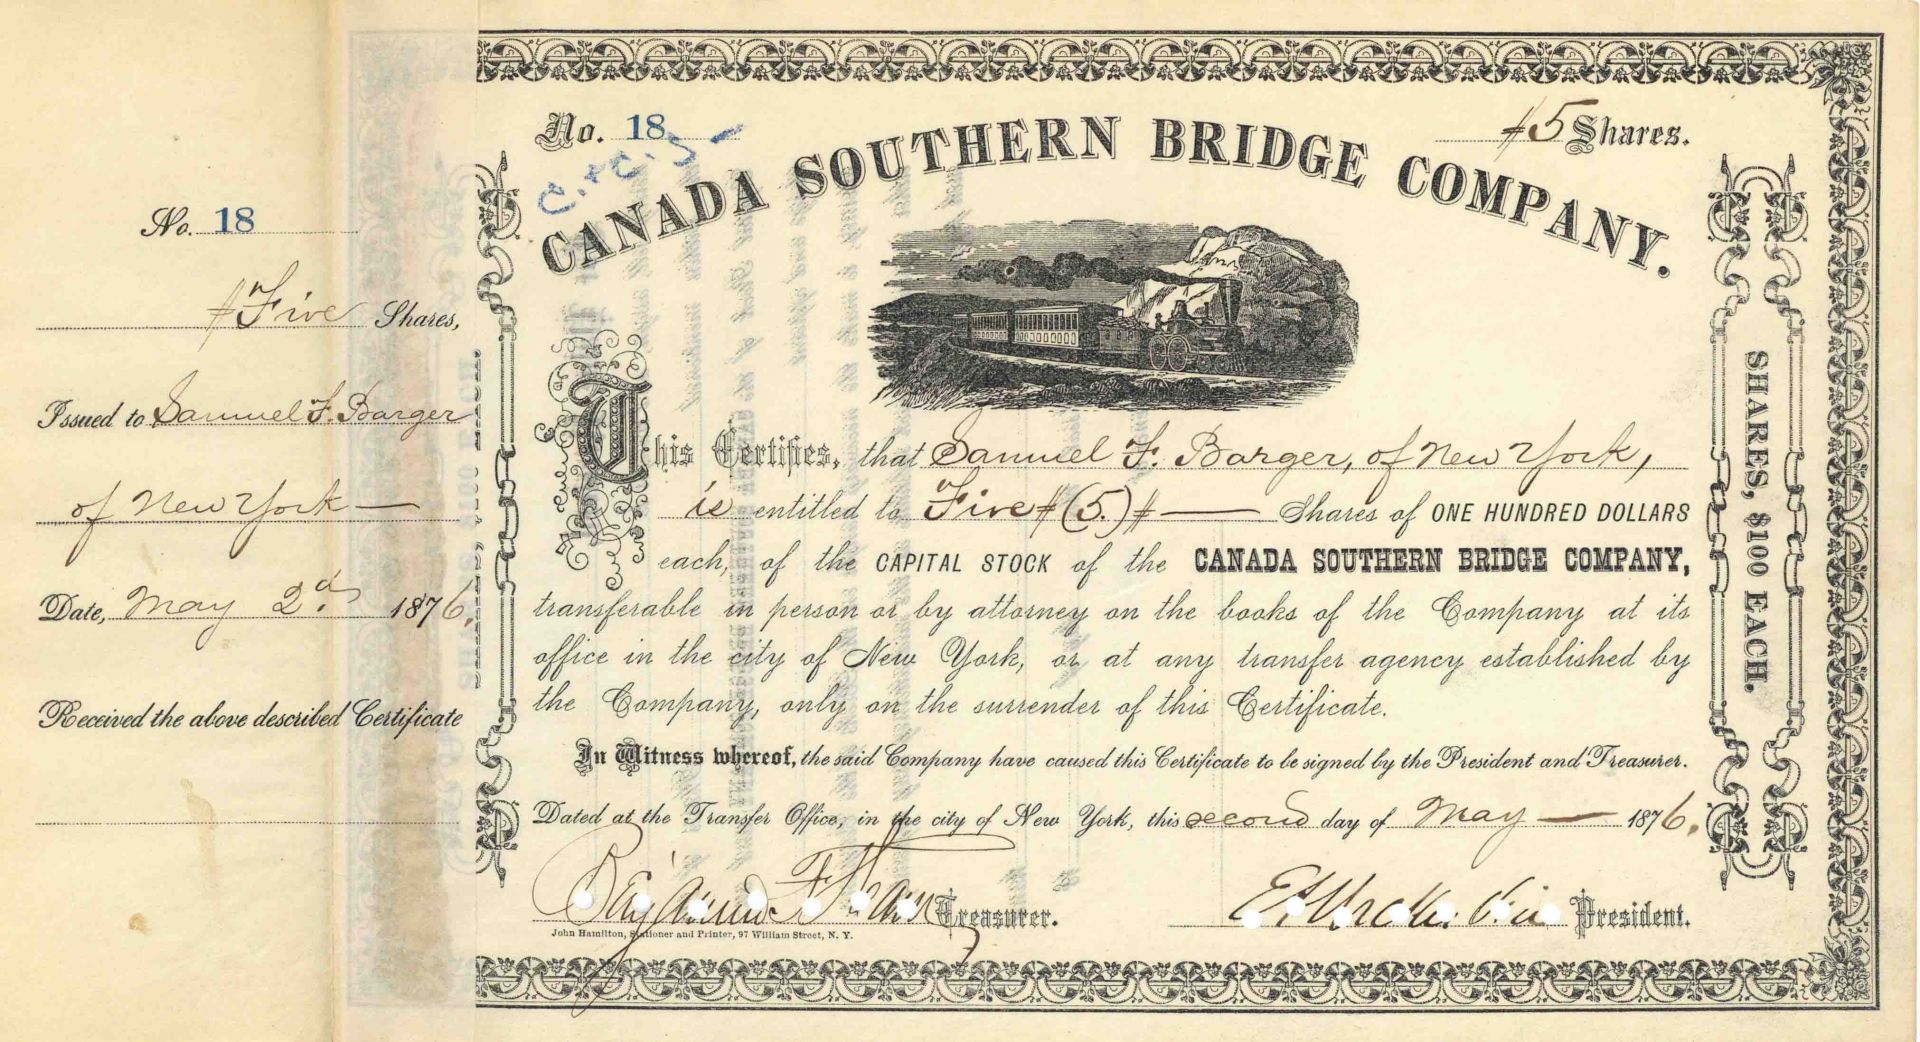 No. 18
Five Shares,
Issued to Samuel F. Barger
of New York
Date, May 2d. 1876.
Received the above described Certificate
No. 18
5 Shares.
CANADA SOUTHERN BRIDGE COMPANY.
This Certifies, that Samuel F. Barger, of New York,
is entitled to Five (5.) Shares of ONE HUNDRED DOLLARS
each, of the CAPITAL STOCK of the CANADA SOUTHERN BRIDGE COMPANY,
transferable in person or by attorney on the books of the Company at its
office in the city of New York, or at any transfer agency established by
the Company, only on the surrender of this Certificate.
In Witness whereof, the said Company have caused this Certificate to be signed by the President and Treasurer.
Dated at the Transfer Office, in the city of New York, this second day of May 1876.
Treasurer. President.
John Hamilton, Stationer and Printer, 97 William Street, N. Y.
SHARES, $100 EACH.